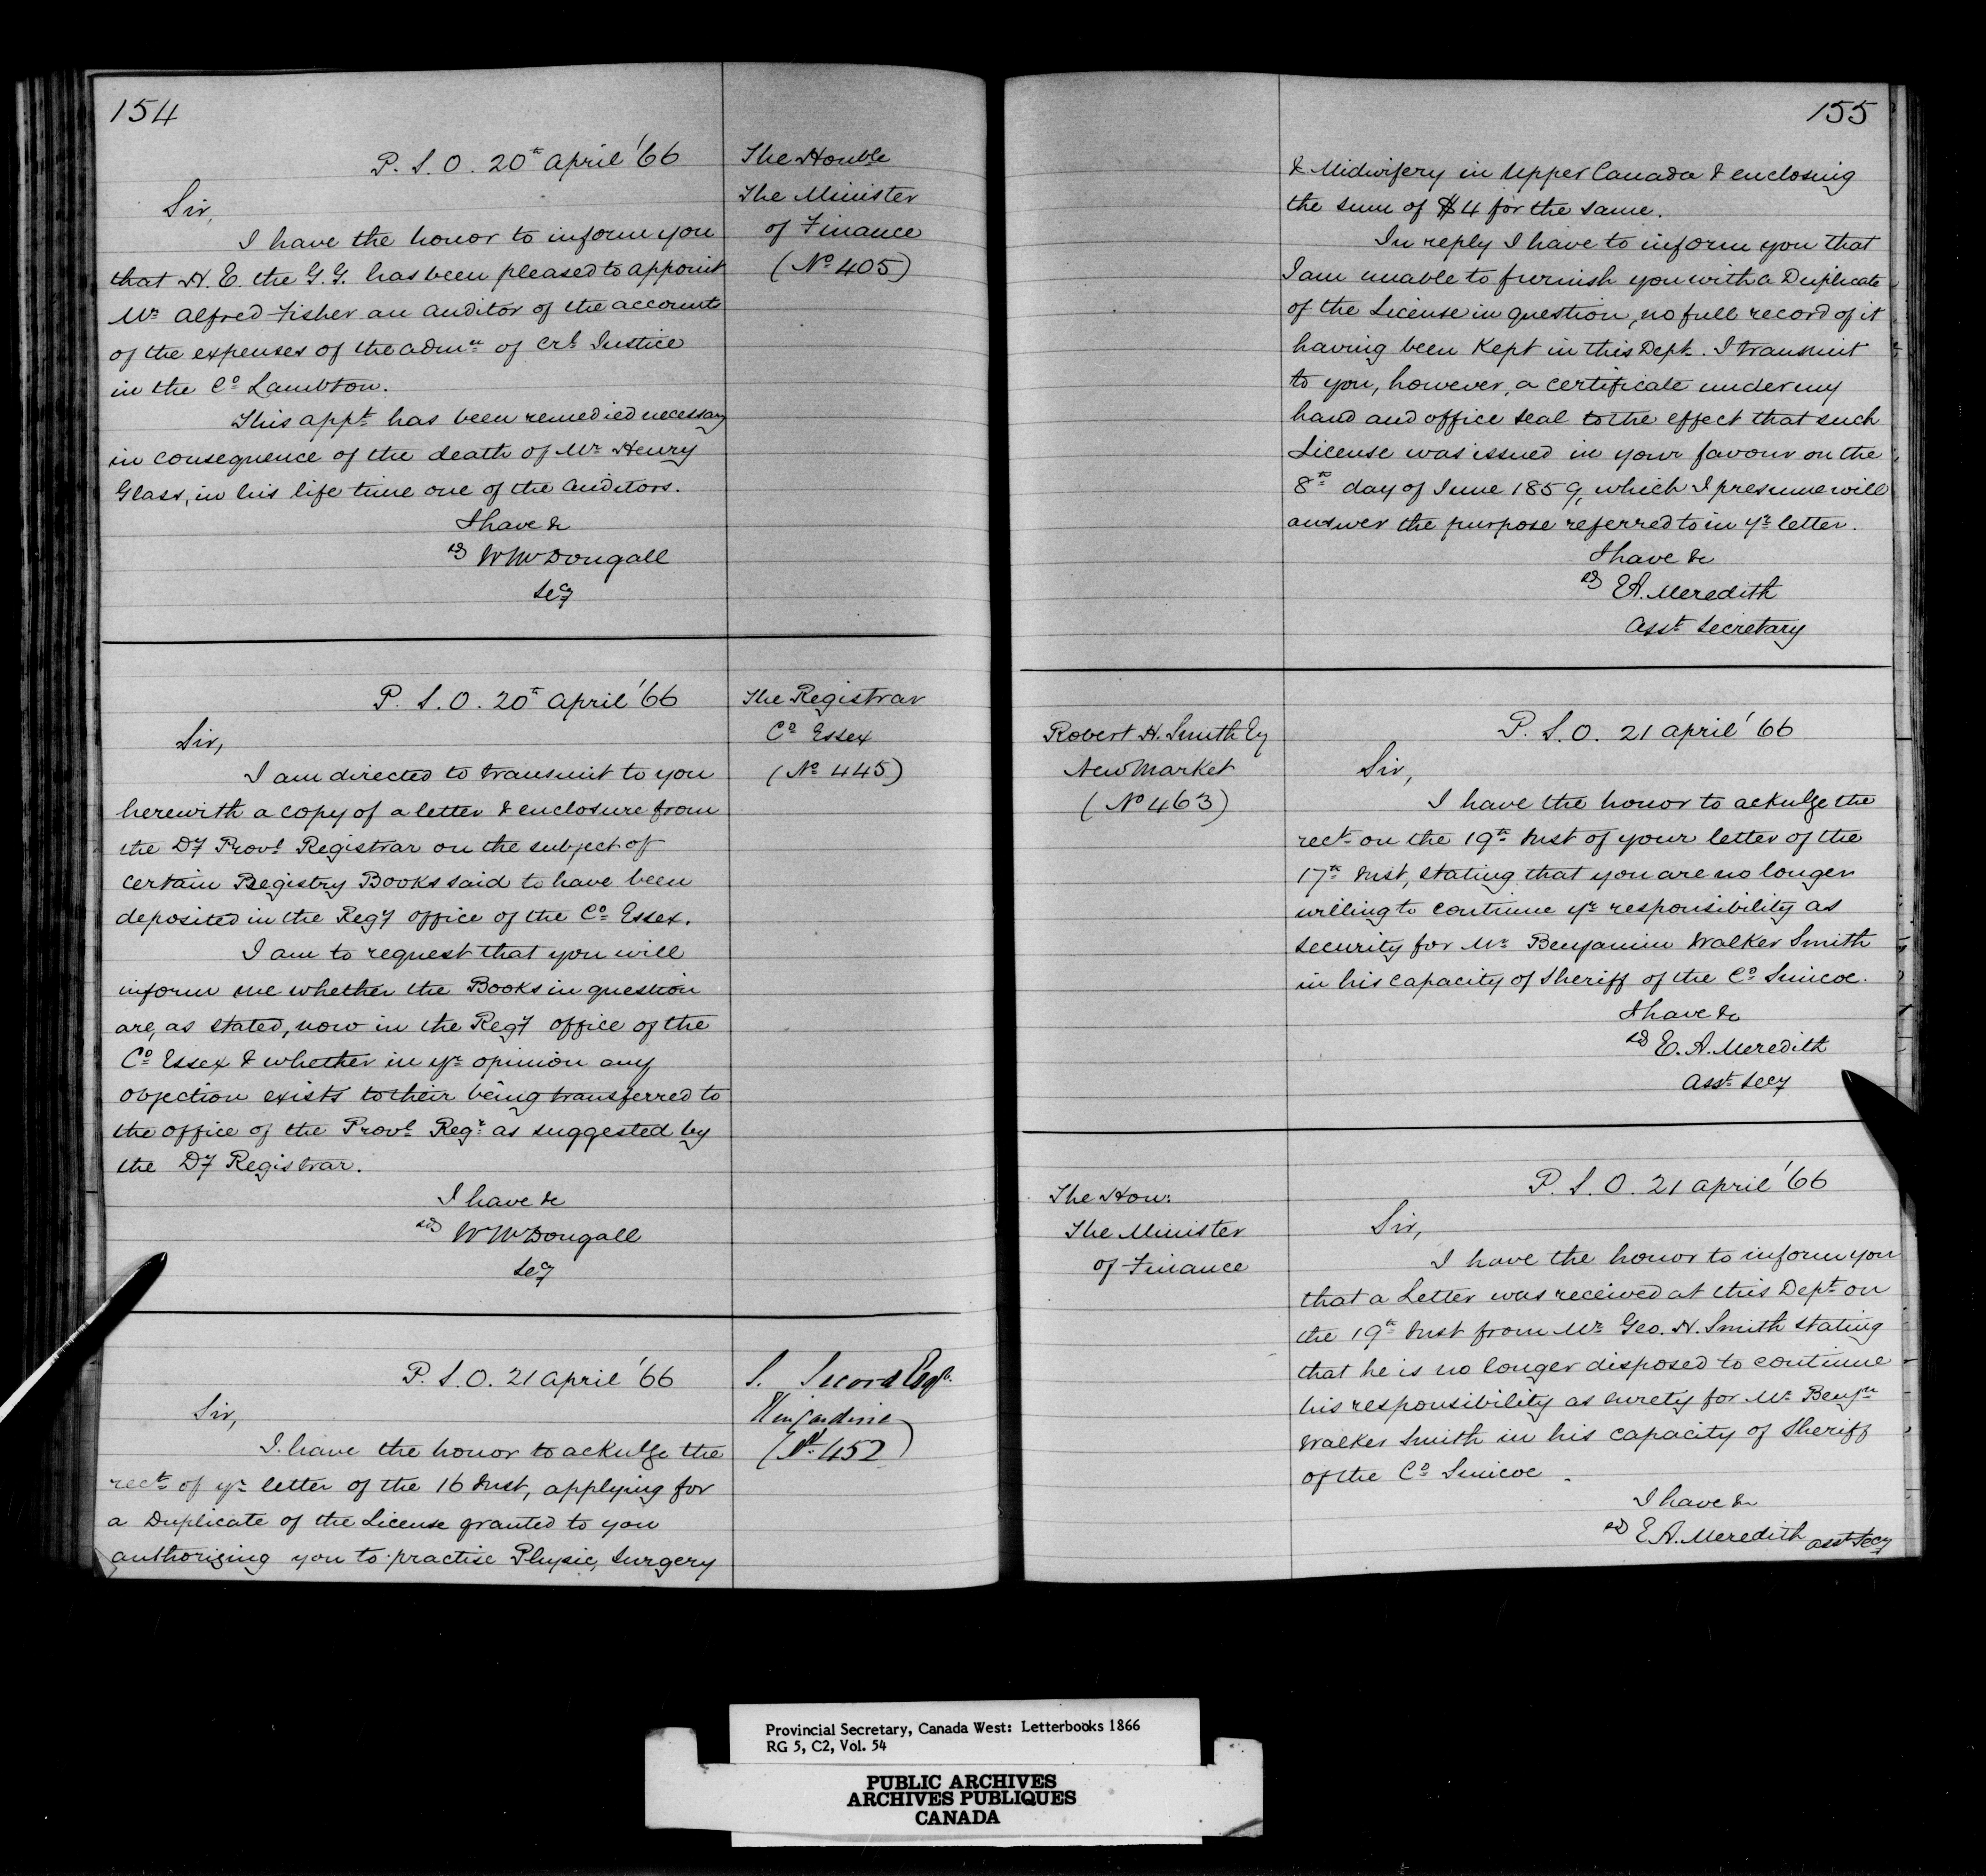 154
P. S. O. 20th April '66
The Honble
The Minister
of Finance
(No 405)
Sir,
I have the honor to inform you
that H. E. the G. G. has been pleased to appoint
Mr Alfred Fisher an Auditor of the accounts
of the expenses of the admn of Crl Justice
in the Co Lambton.
This appt has been remedied necessary
in consequence of the death of Mr Henry
Glass, in his life time one of the Auditors.
I have &c
sd W McDougall
Secy
P. S. O. 20th April '66
The Registrar
Co Essex
(No 445)
Sir,
I am directed to transmit to you
herewith a copy of a letter & enclosure from
the Dy Provl Registrar on the subject of
certain Registry Books said to have been
deposited in the Regy office of the Co Essex.
I am to request that you will
inform me whether the Books in question
are, as stated, now in the Regy office of the
Co Essex & whether in yr opinion any
objection exists to their being transferred to
the office of the Provl Regr as suggested by
the Dy Registrar.
I have &c
sd W McDougall
Secy
P. S. O. 21 April '66
S. Secord Esqr.
Kincardine
(No 452)
Sir,
I have the honor to acknlge the
rect of yr letter of the 16 Inst, applying for
a Duplicate of the License granted to you
authorizing you to practise Physic, Surgery
155
& Midwifery in Upper Canada & enclosing
the sum of $4 for the same.
In reply I have to inform you that
I am unable to furnish you with a Duplicate
of the License in question, no full record of it
having been Kept in this Dept. I transmit
to you, however, a certificate under my
hand and office seal to the effect that such
License was issued in your favour on the
8th day of June 1859, which I presume will
answer the purpose referred to in yr letter.
I have &c
sd E A. Meredith
Asst Secretary
Robert H. Smith Esq
New Market
(No 463)
P. S. O. 21 April '66
Sir,
I have the honor to acknlge the
rect on the 19th Inst of your letter of the
17th Inst, stating that you are no longer
willing to continue yr responsibility as
security for Mr Benjamin Walker Smith
in his capacity of Sheriff of the Co Simcoe.
I have &c
sd E. A. Meredith
Asst Secy
The Hon:
The Minister
of Finance
P. S. O. 21 April '66
Sir,
I have the honor to inform you
that a Letter was received at this Dept on
the 19th Inst from Mr Geo. H. Smith stating
that he is no longer disposed to continue
his responsibility as surety for Mr Benjn
Walker Smith in his capacity of Sheriff
of the Co Simcoe.
I have &c
sd E A. Meredith Asst Secy
Provincial Secretary, Canada West: Letterbooks 1866
RG 5, C2, Vol. 54
PUBLIC ARCHIVES
ARCHIVES PUBLIQUES
CANADA